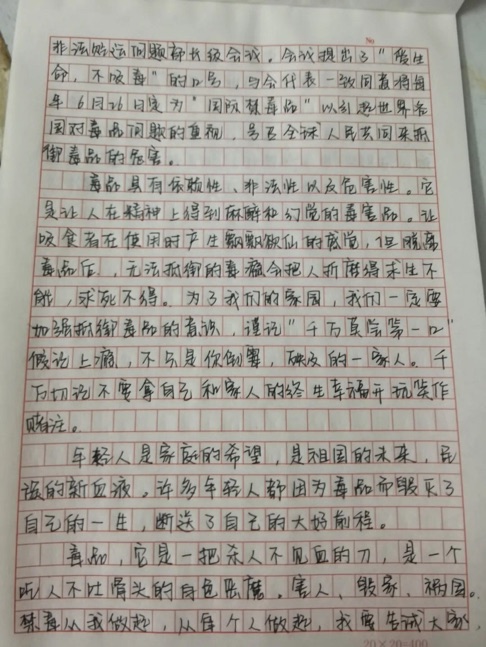 非法贩运问题部长级会议。会议提出了“爱生
命，不吸毒”的口号，与会代表一致同意将每
年6月26日定为“国际禁毒品”以引起世界各
国对毒品问题的重视，号召全球人民共同来抵
御毒品的危害。
毒品具有依赖性、非法性以及危害性。它
是让人在精神上得到麻醉和幻觉的毒害品。让
吸食者在使用时产生飘飘欲仙的感觉，但脱离
毒品后，无法抵御的毒瘾会把人折磨得求生不
能，求死不得。为了我们的家园，我们一定要
加强抵御毒品的意识，谨记“千万莫尝第一口”
假设上瘾，不只是你倒霉，殃及的一家人。千
万切记不要拿自己和家人的终生幸福开玩笑作
赌注。
年轻人是家庭的希望，是祖国的未来，民
族的新血液。许多年轻人都因为毒品而毁灭了
自己的一生，断送了自己的大好前程。
毒品，它是一把杀人不见血的刀，是一个
吃人不吐骨头的白色恶魔。害人、毁家、祸国。
禁毒从我做起，从每个人做起，我要告诫大家，
20×20=400